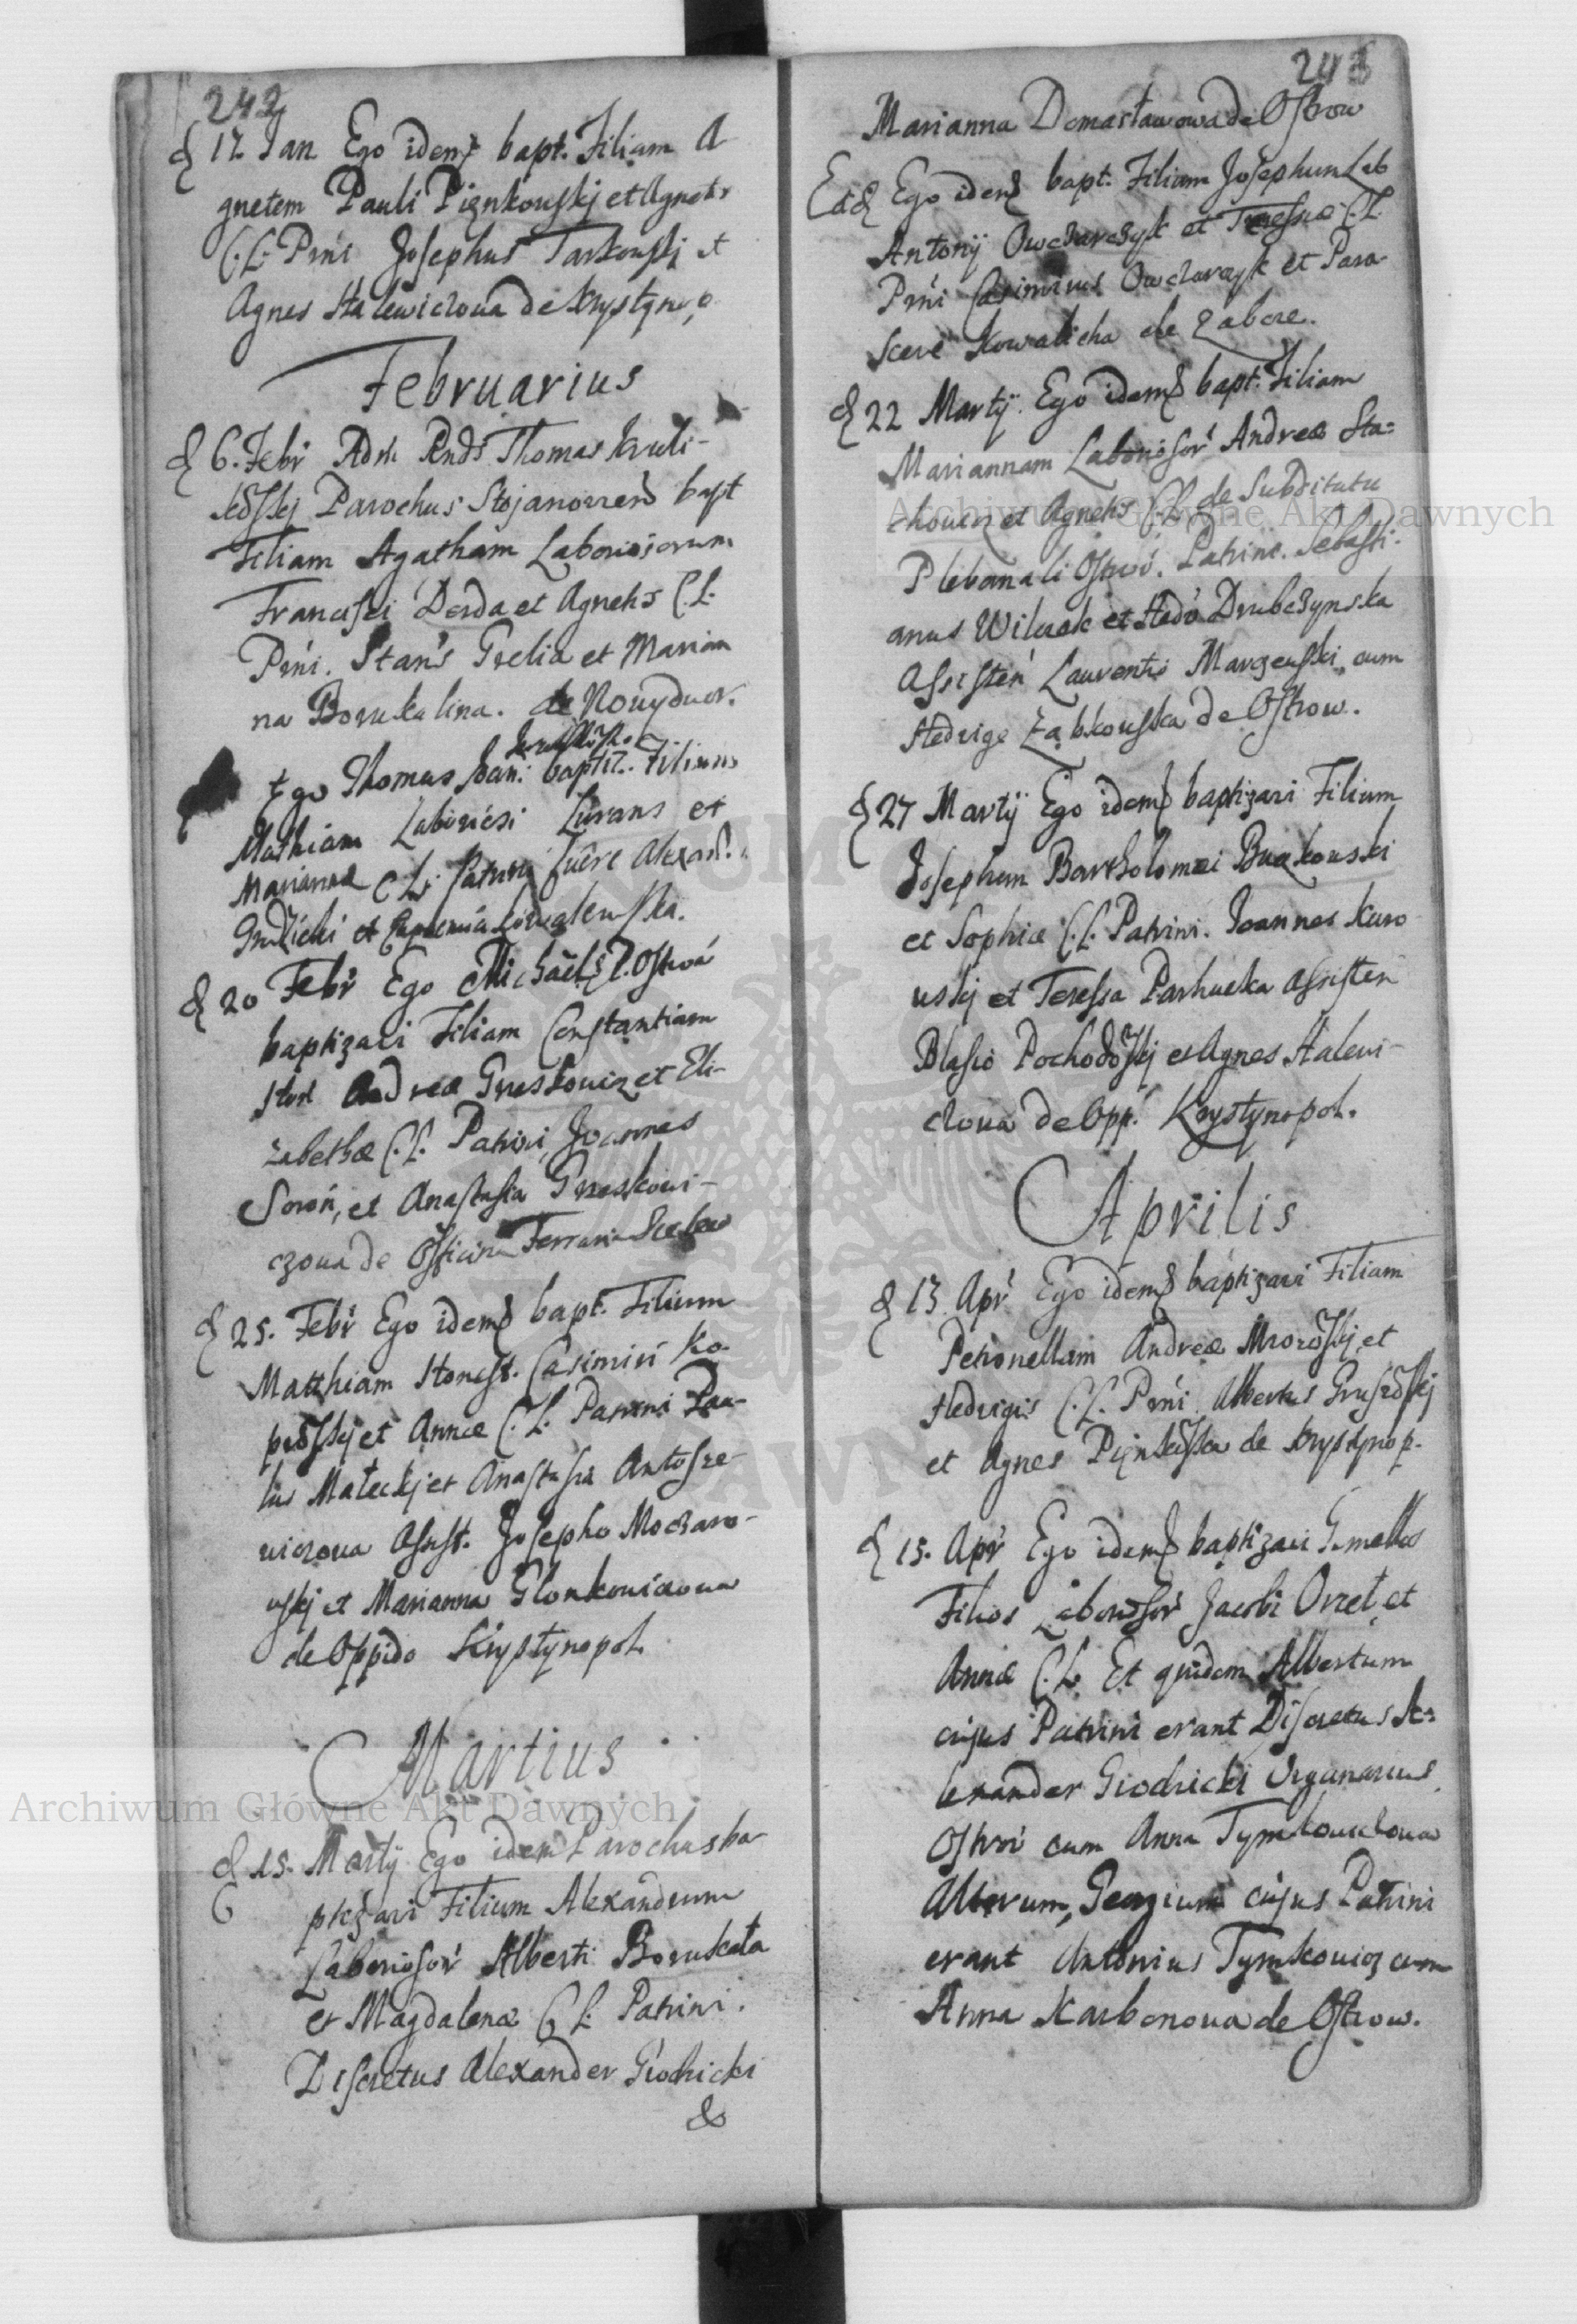 242
d 17 Jan Ego idem bapt. Filiam A
gnetem Pauli Pięnkouskj et Agnetis
C.L. Prńi Josephus Tarkouskj et
Agnes Halewiczoua de Krystynop
Februarius
d 6. Febr Adm Rnds Thomas
Parochus Stojanovien bapt
Filiam Agatham Laboriosorum
Francisci Derda et Agnetis C.L.
Prńi. Stans Grelia et Marian
na Borukalina. de Nouydwor.
Ego Thomas baptiz. Filium
Mathiam et
Marianna C.L. Patrini fuere Alexand.
et
d 20 Febr Ego Michael P. Ostroá
baptizaui Filiam Constantiam
Hon Andreæ Greskouicz et Eli-
zabethæ C.L. Patrini, Joannes
Soroń, et Anastasia Greskoui-
czoua de Officina Ferraria
d 25. Febr Ego idem bapt. Filium
Matthiam Honest. Casimiri Ko-
et Annæ C.L. Patrini Pau-
lus Małeckj et Anastasia Antosze-
wiczoua Assist. Josepho Moczaro-
uskj et Marianna Glonkouiczoua
de Oppido Krystynopol.
Martius
d 15. Martij Ego idem Parochus ba
ptizaui Filium Alexandrum
Laboriosor Alberti Borukała
et Magdalenæ C.L. Patrini.
Discretus Alexander Giodricki
&
243
Marianna Domasławowa de Ostrow
Ead Ego idem bapt. Filium Josephum Lab
Antonij Owczarczyk et Teressiæ C.L.
Prńi Casimirus Owczarczyk et Para-
sceve Kowalicha de Zabcze.
d 22 Martij. Ego idem bapt. Filiam
Mariannam Laboriosor Andreæ Sta=
chouicz et Agnetis C.L. de Subditatu
Plebanali Ostroú. Patrini. Sebasti-
anus Wilczak et Hedv Drubczynska
Assisteń Laurentio Margeuski cum
Hedvige Ząbkouska de Ostrow.
d 27 Martij Ego idem baptizavi Filium
Josephum Bartholomæi Buczkouski
et Sophiæ C.L. Patrini. Joannes Karo
uskj et Teressa Parhucka assisten
Blasio et Agnes Haleui-
czoua de Opp. Krystynopol.
Aprilis
d 13 Apr Ego idem baptizavi Filiam
Petronellam Andreæ et
Hedvigis C.L. Prńi. Albertus
et Agnes de Krystynop.
d 15. Apr Ego idem baptizavi Gemellos
Filios Laboriosor Jacobi Orzeł et
Annæ C.L. Et quidem Albertum
cujus Patrini erant Discretus Ale=
lexander Giodricki Organarius
Ostroú cum Anna Tymkouiczoua
Alterum, Georgium cujus Patrini
erant Antonius Tymkouicz cum
Anna Karbonoua de Ostrow.
Archiwum Główne Akt Dawnych
Archiwum Główne Akt Dawnych